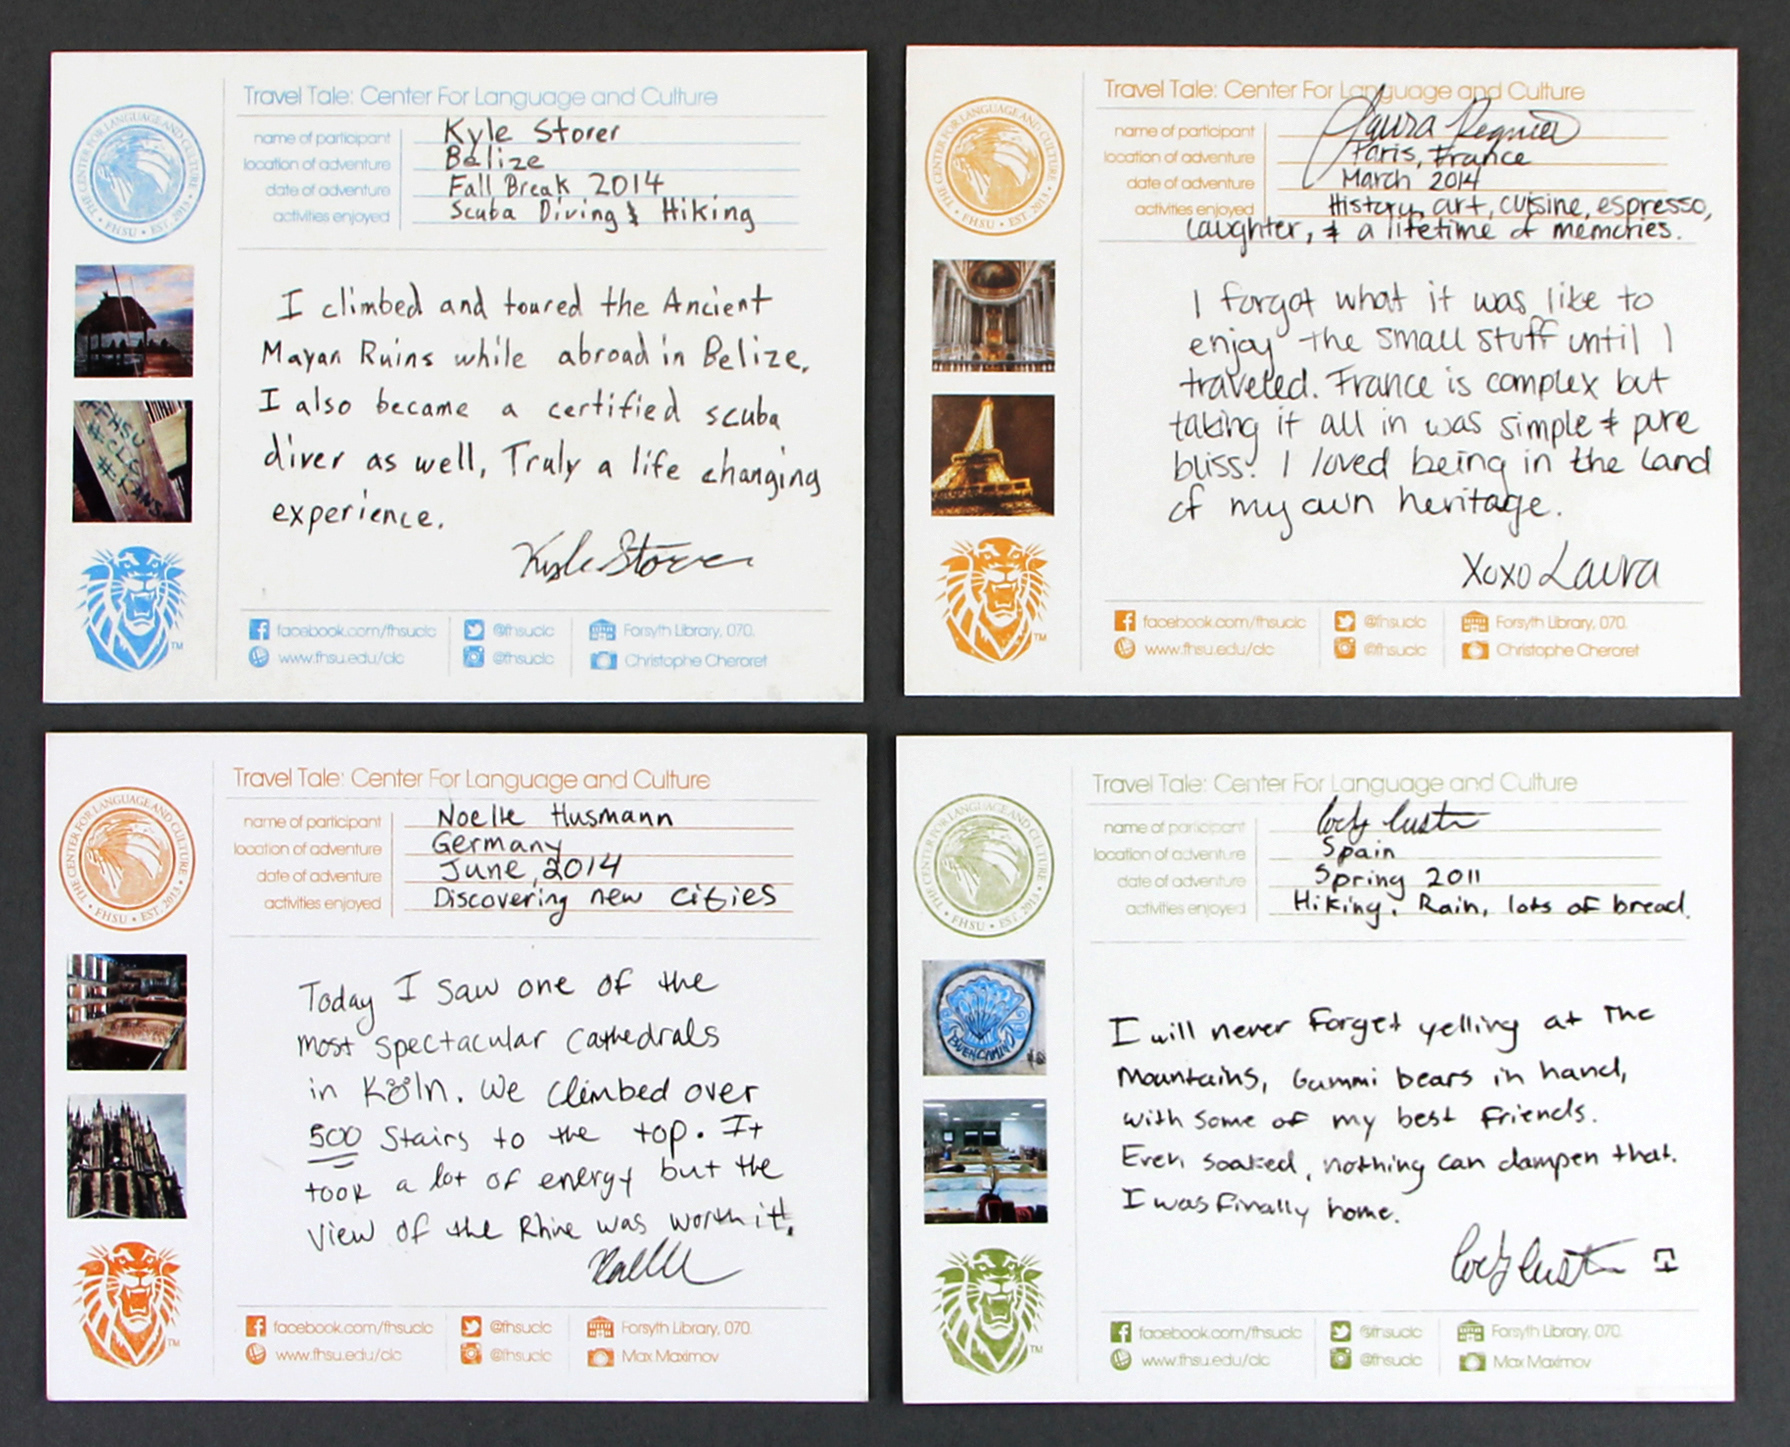 Travel Tale: Center For Language and Culture
name of participant Kyle Storer
location of adventure Belize
date of adventure Fall Break 2014
activities enjoyed Scuba Diving & Hiking
THE CENTER FOR LANGUAGE AND CULTURE
• FHSU • EST. 2013 •
I climbed and toured the Ancient
Mayan Ruins while abroad in Belize,
I also became a certified scuba
diver as well, Truly a life changing
experience.
Kyle Storer
#FHSU
#CLC
TM
facebook.com/fhsuclc @fhsuclc Forsyth Library, 070.
www.fhsu.edu/clc @fhsuclc Christophe Cheroret
Travel Tale: Center For Language and Culture
name of participant Laura Regnier
location of adventure Paris, France
date of adventure March 2014
activities enjoyed History, art, cuisine, espresso,
laughter, & a lifetime of memories.
THE CENTER FOR LANGUAGE AND CULTURE
• FHSU • EST. 2013 •
I forgot what it was like to
enjoy the small stuff until I
traveled. France is complex but
taking it all in was simple & pure
bliss! I loved being in the land
of my own heritage.
XOXO Laura
TM
facebook.com/fhsuclc @fhsuclc Forsyth Library, 070.
www.fhsu.edu/clc @fhsuclc Christophe Cheroret
Travel Tale: Center For Language and Culture
name of participant Noelle Husmann
location of adventure Germany
date of adventure June, 2014
activities enjoyed Discovering new cities
THE CENTER FOR LANGUAGE AND CULTURE
• FHSU • EST. 2013 •
Today I saw one of the
most spectacular cathedrals
in Köln. We climbed over
500 stairs to the top. It
took a lot of energy but the
view of the Rhine was worth it.
Noelle
TM
facebook.com/fhsuclc @fhsuclc Forsyth Library, 070.
www.fhsu.edu/clc @fhsuclc Max Maximov
Travel Tale: Center For Language and Culture
name of participant Cody Lustr
location of adventure Spain
date of adventure Spring 2011
activities enjoyed Hiking, Rain, lots of bread.
THE CENTER FOR LANGUAGE AND CULTURE
• FHSU • EST. 2013 •
BUEN CAMINO
I will never forget yelling at the
Mountains, Gummi bears in hand,
with some of my best friends.
Even soaked, nothing can dampen that.
I was finally home.
Cody Lustr
TM
facebook.com/fhsuclc @fhsuclc Forsyth Library, 070.
www.fhsu.edu/clc @fhsuclc Max Maximov